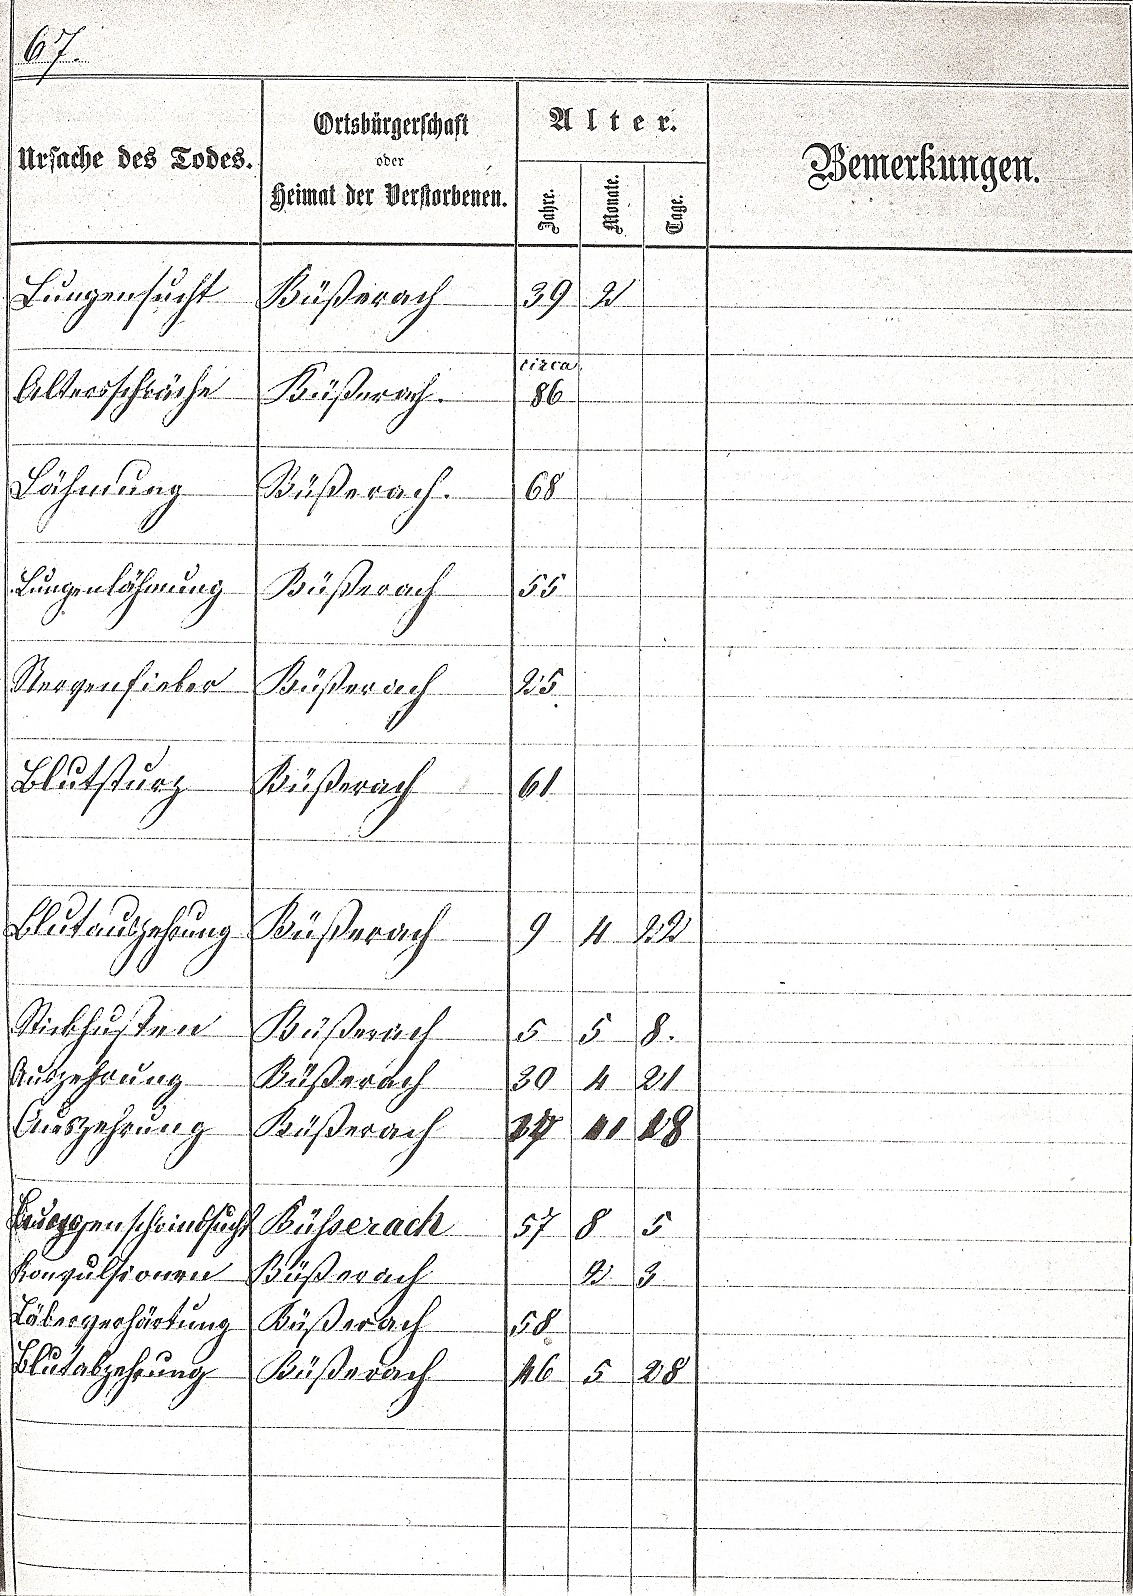 67.
Ursache des Todes.
Ortsbürgerschaft
oder
Heimat der Verstorbenen.
Alter.
Jahre.
Monate.
Tage.
Bemerkungen.
Lungensucht Büßerach 39 2
circa
Altersschwäche Büßerach. 86
Lähmung Büßerach. 68
Lungenlähmung Büßerach 55
Nervenfieber Büßerach 25
Blutsturz Büßerach 61
Blutauszehrung Büßerach 9 4 22
Stickhusten Büßerach 5 5 8.
Auszehrung Büßerach 30 4 21
Auszehrung Büßerach 18
Lungenschwindsucht Büßerach 57 8 5
Konvulsionen Büßerach 2 3
Läberverhärtung Büßerach 58
Blutabzehrung Büßerach 46 5 28